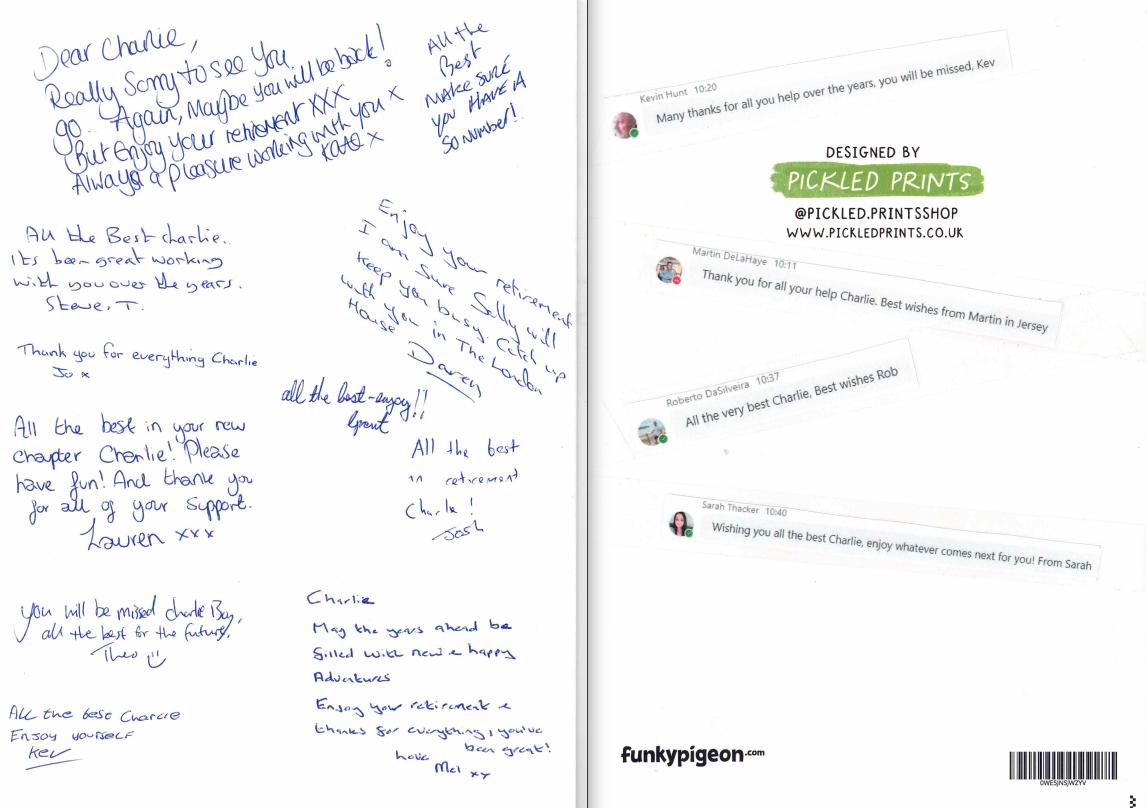 Dear Charlie,
Really Sorry to see you
go.. Again, Maybe you will be back!
But Enjoy your retirement XXX
Always a pleasure working with you x
Kate x
All the
Best
MAKE SURE
you HAVE A
SO NUMBER!
All the Best charlie..
It's been great working
with you over the years.
Steve. T.
Enjoy your retirement
I am sure Sally will
keep you busy. Catch up
with you in The London
House
Darcy
Thank you for everything Charlie
Jo x
all the best-enjoy!!
Grant
All the best in your new
chapter Charlie! Please
have fun! And thank you
for all of your support.
Lauren xxx
All the best
in retirement
Charlie!
Josh
you will be missed charlie Boy,
all the best for the future.
Theo
Charlie
May the years ahead be
filled with new & happy
Adventures
Enjoy your retirement &
thanks for everything, you've
been great!
love
Mel xx
All the best Charlie
Enjoy yourself
Kev
Kevin Hunt 10:20
Many thanks for all you help over the years, you will be missed, Kev
DESIGNED BY
PICKLED PRINTS
@PICKLED.PRINTSSHOP
WWW.PICKLEDPRINTS.CO.UK
Martin DeLaHaye 10:11
Thank you for all your help Charlie. Best wishes from Martin in Jersey
Roberto DaSilveira 10:37
All the very best Charlie, Best wishes Rob
Sarah Thacker 10:40
Wishing you all the best Charlie, enjoy whatever comes next for you! From Sarah
funkypigeon.com
0WESJNSJWZYV